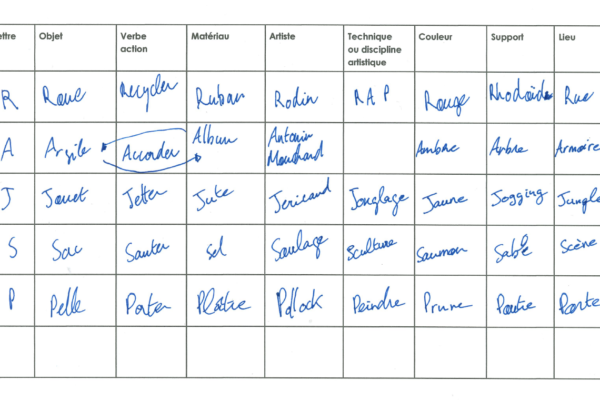 ettre Objet Verbe action Matériau Artiste Technique ou discipline artistique Couleur Support Lieu
R Roue Recycler Ruban Rodin RAP Rouge Rhodoïde Rue
A Argile Accorder Album Antonin Mouchard Ambre Arbre Armoire
J Jouet Jetter Jute Jericaud Jonglage Jaune Jogging Jungle
S Sac Sauter sel Soulage Sculture Saumon Sable Scène
P Pelle Porter Plâtre Pollock Peindre Prune Poutre Porte